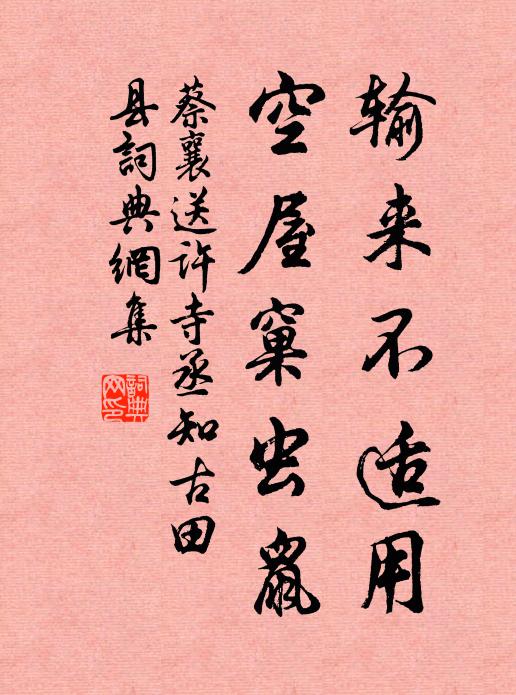 输来不适用
空屋窠虫鼠
蔡襄送许寺丞知古田
县詞典網集
詞典
网印